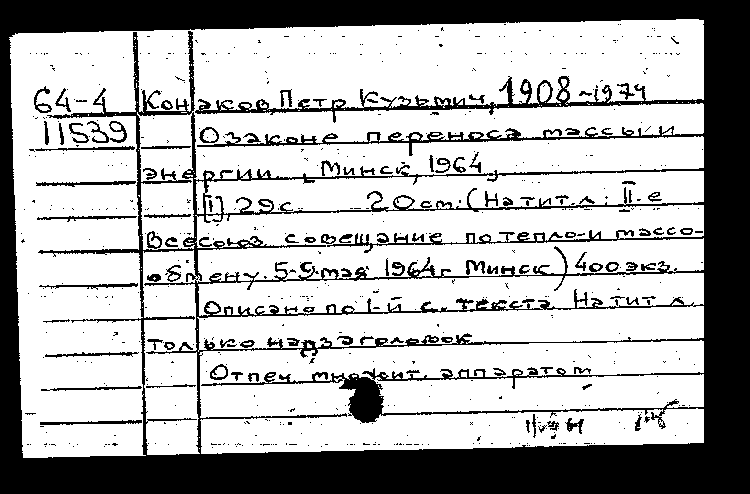 64-4 Конаков, Петр Кузьмич, 1908-1974
11539 О законе переноса массы и
энергии. Минск, 1964.
[1], 29 с. 20 см. (На тит. л.: II-е
Всесоюз. совещание по тепло-и массо-
обмену. 5-9. мая 1964 г. Минск) 400 экз.
Описано по 1-й с. текста На тит л.
только надзаголовок
Отпеч. множит. аппаратом